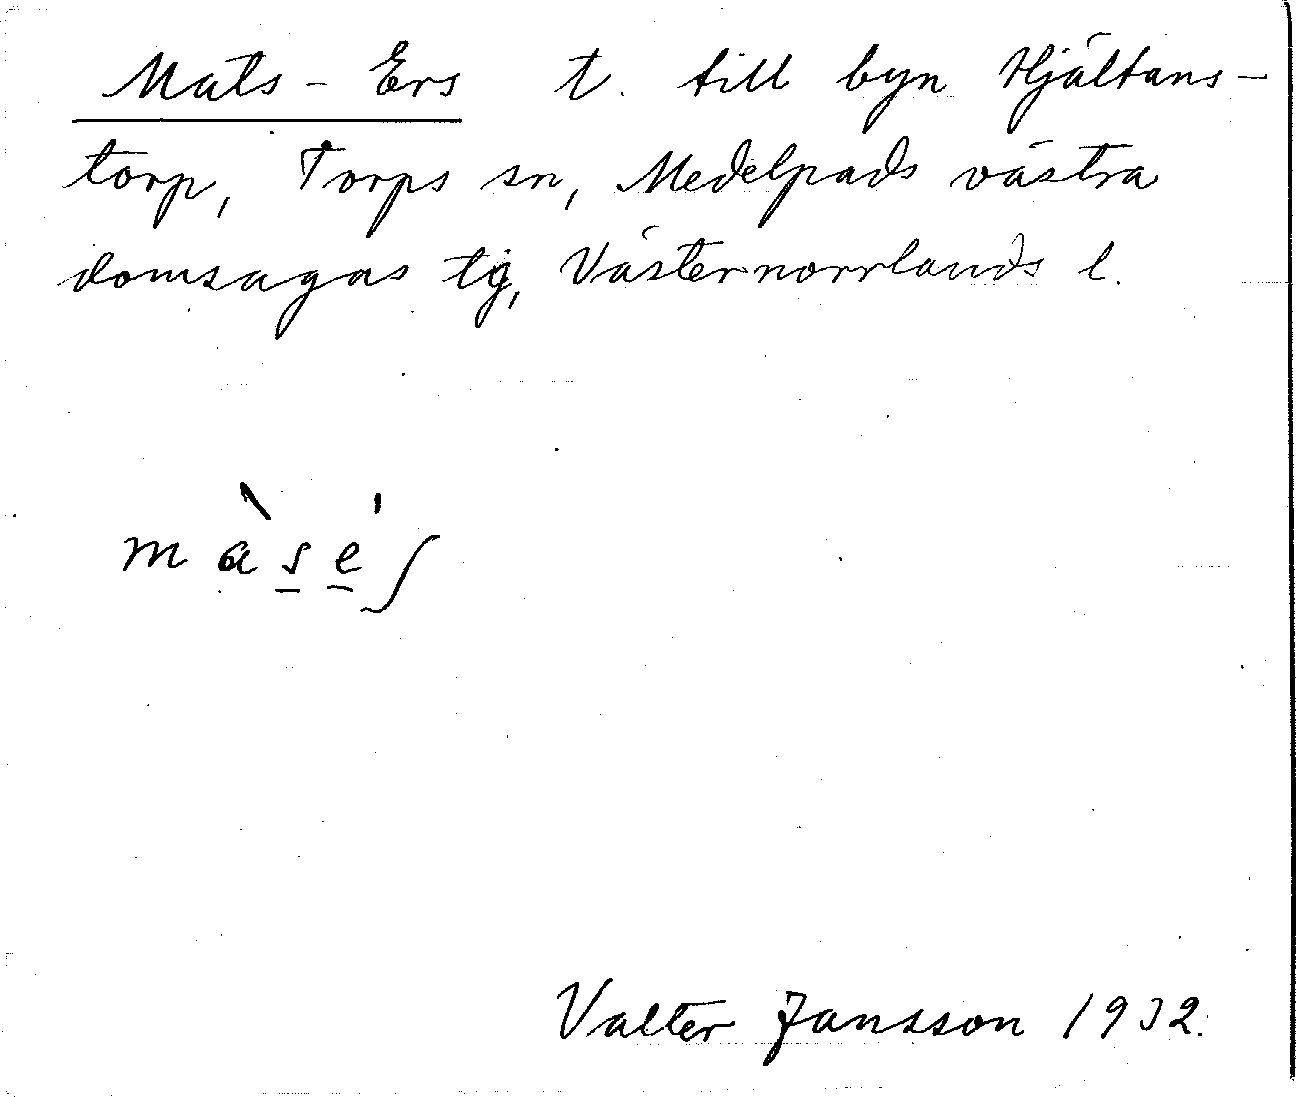 Mats - Ers t. till byn Hjältans-
torp, Torps sn, Medelpads västra
domsagas tg, Västernorrlands l.
màse̍ʃ
Valter Jansson 1932.